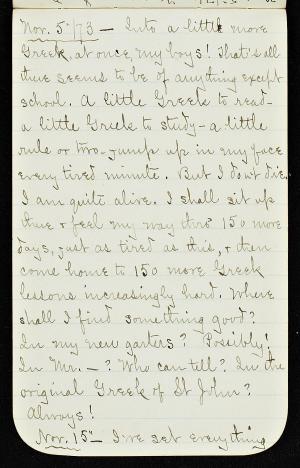 Nov. 5th/73 — Into a little more
Greek, at once, my boys! That's all
there seems to be of anything except
school. A little Greek to read —
a little Greek to study — a little
rule or two — jump up in my face
every tired minute. But I don't die.
I am quite alive. I shall sit up
there & feel my way thro' 150 more
days, just as tired as this, & then
come home to 150 more Greek
lessons increasingly hard. Where
shall I find something good?
In my new garters? Possibly!
In Mr. — ? Who can tell? In the
original Greek of St John?
Always!
Nov. 15th — I've set everything